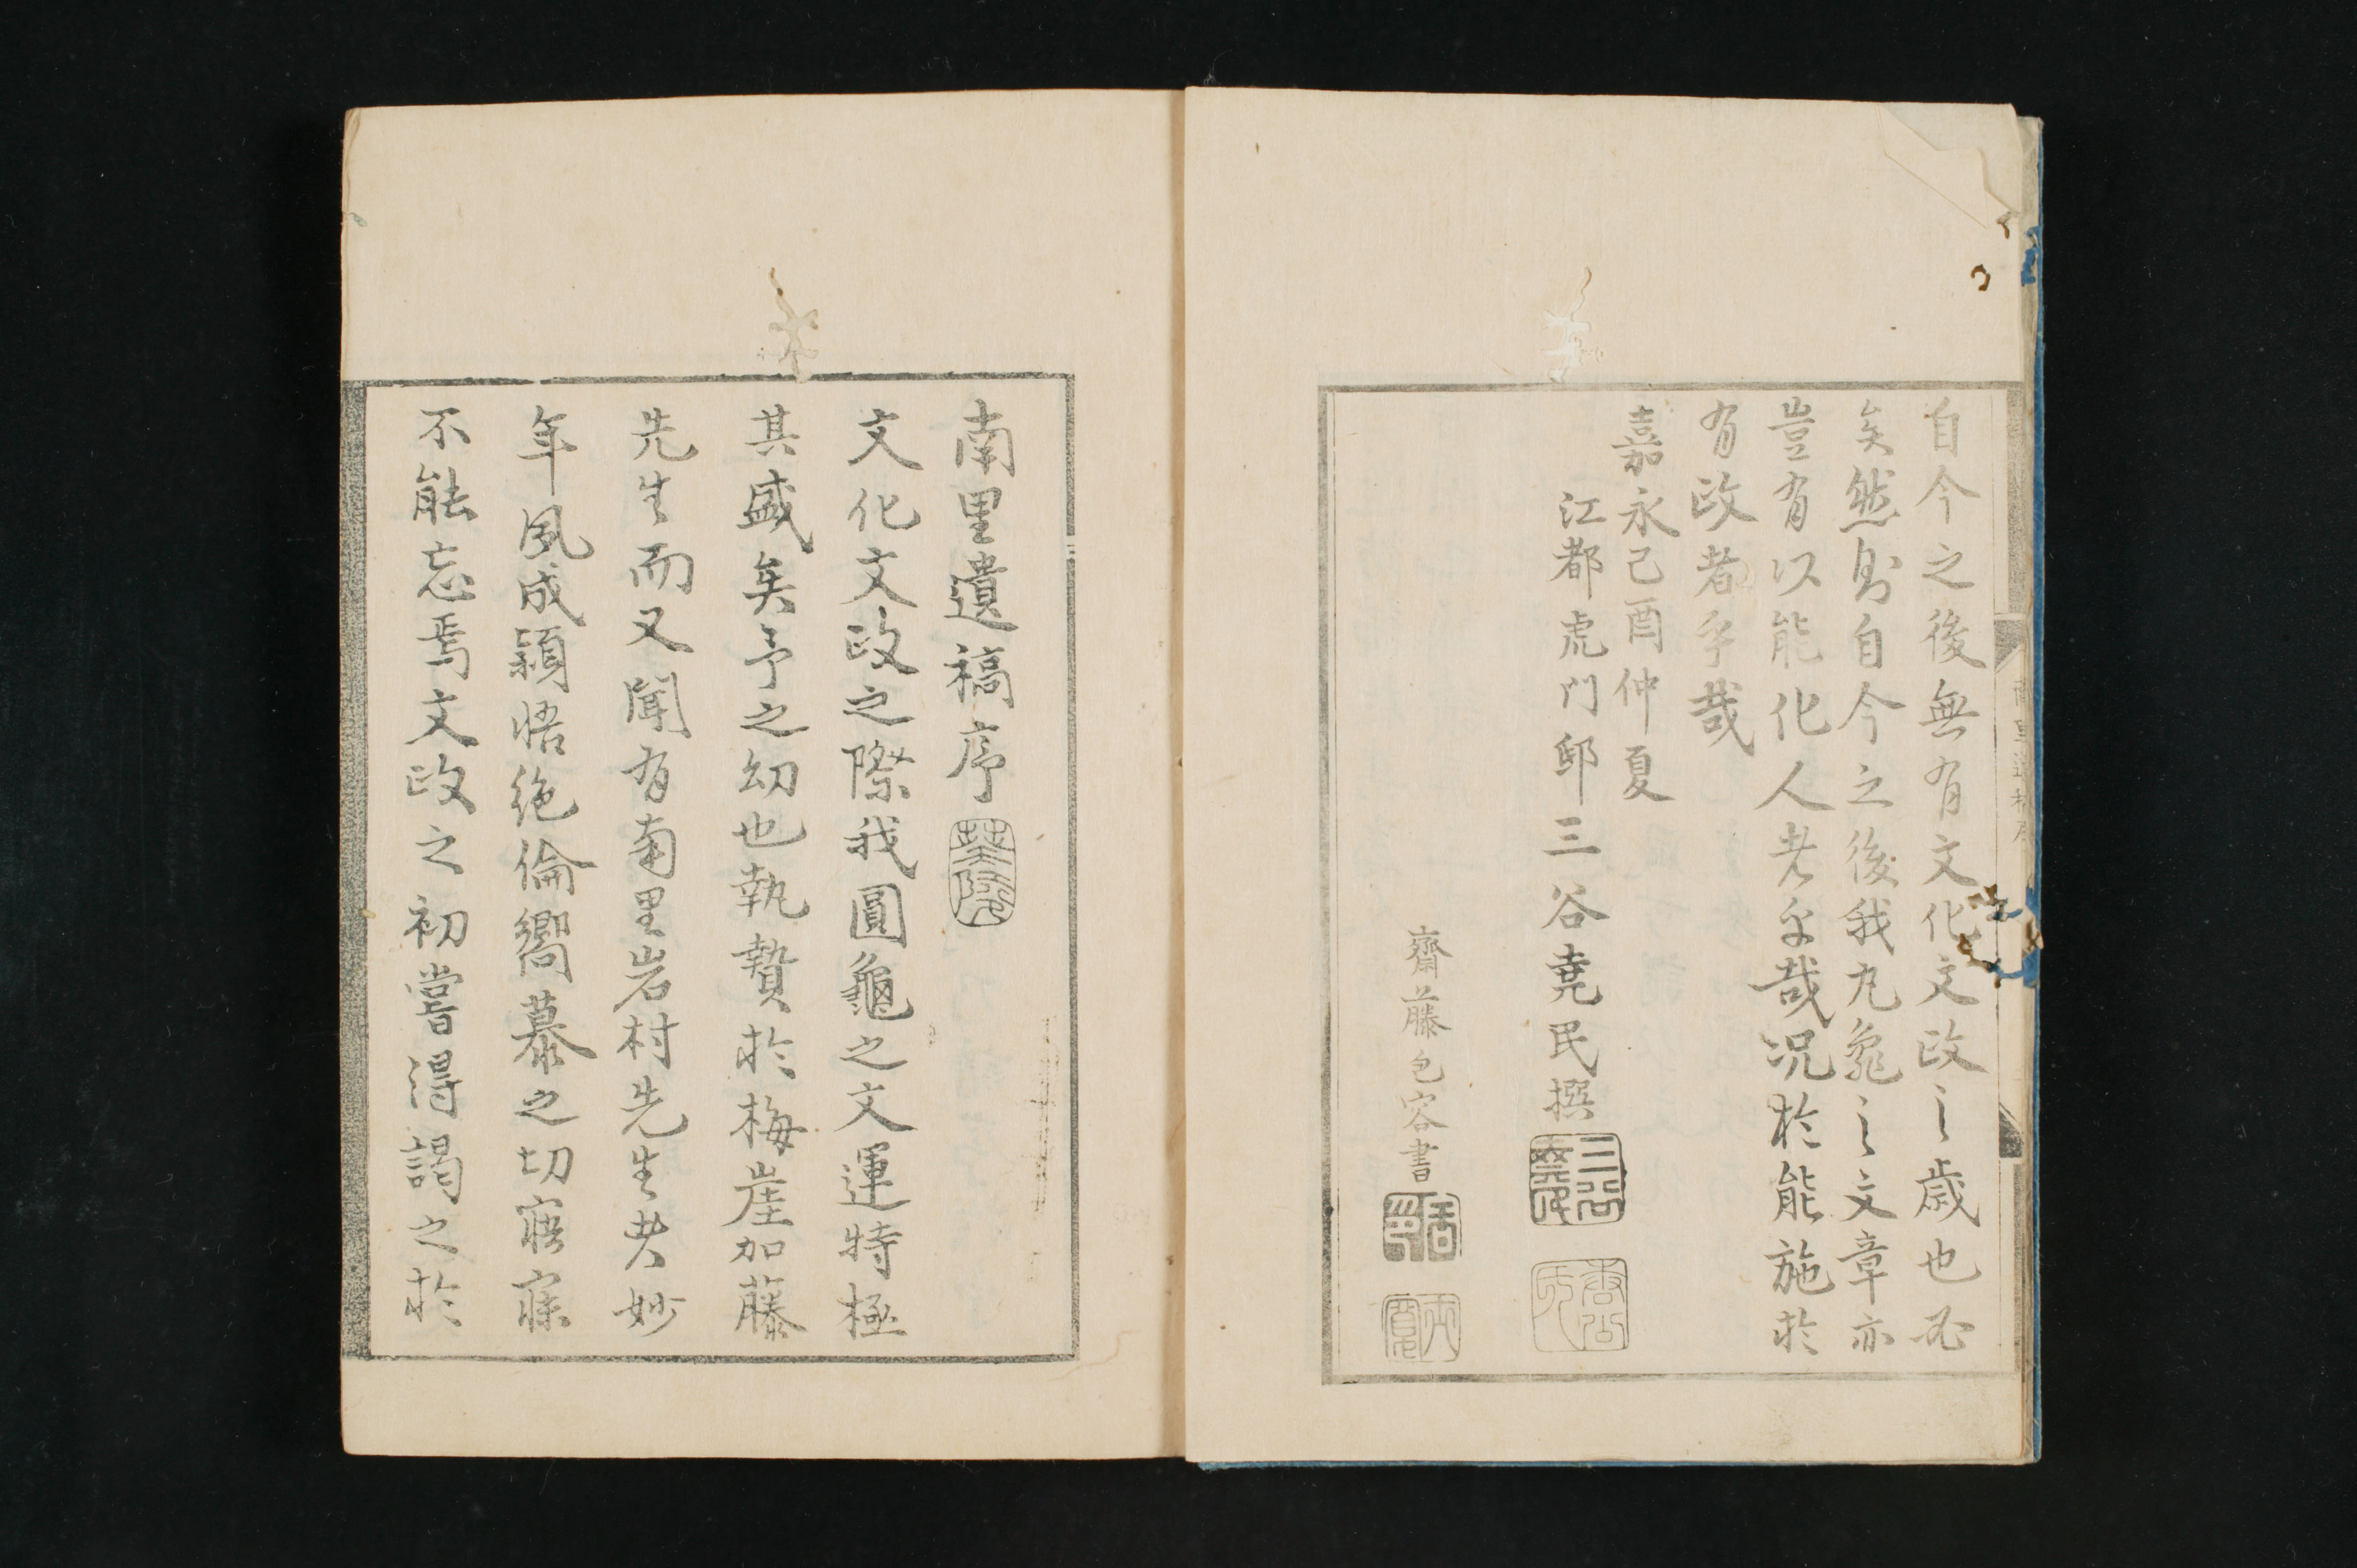 自今之後無有文化文政之歳也必
矣然則自今之後我丸龜之文章亦
豈有以能化人者乎哉况於能施於
有政者乎哉
嘉永己酉仲夏
江都虎門邸三谷尭民撰
齋藤包容書
南里遺稿序
文化文政之際我圓龜之文運特極
其盛矣予之幼也執贄於梅崖加藤
先生而又聞有南里岩村先生者妙
年夙成穎悟絶倫嚮慕之切寤寐
不能忘焉文政之初嘗得謁之於